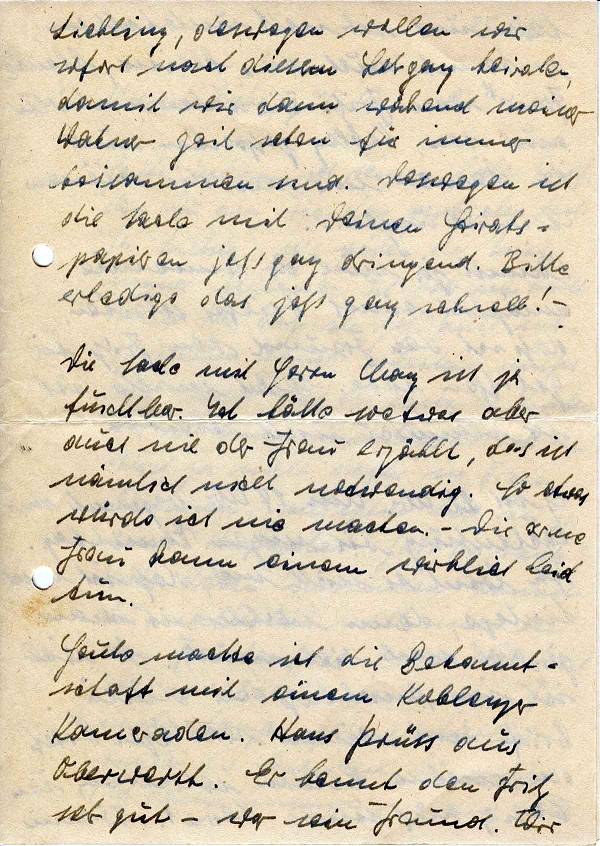 Liebling, deswegen wollen wir
sofort nach diesem Lehrgang heiraten,
damit wir dann während meiner
Wahner Zeit schon für immer
beisammen sind. Deswegen ist
die Sache mit Deinen Heirats-
papieren jetzt ganz dringend. Bitte
erledige das jetzt ganz schnell! –
Die Sache mit Herrn May ist ja
furchtbar. Ich hätte so etwas aber
auch nie der Frau erzählt, das ist
nämlich nicht notwendig. So etwas
würde ich nie machen. – Die arme
Frau kann einem wirklich leid
tun.
Heute machte ich die Bekannt-
schaft mit einem Koblenzer
Kameraden. Hans Prüss aus
Oberwerth. Er kennt den Fritz
sehr gut – war sein Freund. Wir